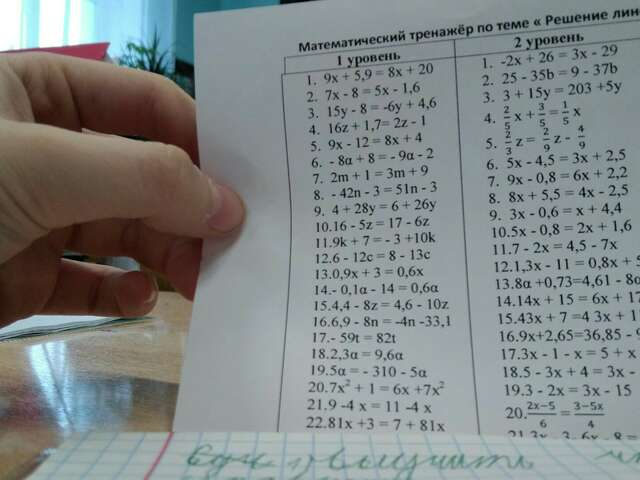 Математический тренажёр по теме « Решение
1 уровень
1. 9x + 5,9 = 8x + 20
2. 7x - 8 = 5x - 1,6
3. 15y - 8 = -6y + 4,6
4. 16z + 1,7= 2z - 1
5. 9x - 12 = 8x + 4
6. - 8α + 8 = - 9α - 2
7. 2m + 1 = 3m + 9
8. - 42n - 3 = 51n - 3
9. 4 + 28y = 6 + 26y
10.16 - 5z = 17 - 6z
11.9k + 7 = - 3 +10k
12.6 - 12c = 8 - 13c
13.0,9x + 3 = 0,6x
14.- 0,1α - 14 = 0,6α
15.4,4 - 8z = 4,6 - 10z
16.6,9 - 8n = -4n -33,1
17.- 59t = 82t
18.2,3α = 9,6α
19.5α = - 310 - 5α
20.7x² + 1 = 6x +7x²
21.9 -4 x = 11 -4 x
22.81x +3 = 7 + 81x
2 уровень
1. -2x + 26 = 3x - 29
2. 25 - 35b = 9 - 37b
3. 3 + 15y = 203 +5y
4. 2/5 x + 3/5 = 1/5 x
5. 2/3 z = 2/9 z - 4/9
6. 5x - 4,5 = 3x + 2,5
7. 9x - 0,8 = 6x + 2,2
8. 8x + 5,5 = 4x - 2,5
9. 3x - 0,6 = x + 4,4
10.5x - 0,8 = 2x + 1,6
11.7 - 2x = 4,5 - 7x
12.1,3x - 11 = 0,8x +
13.8α +0,73=4,61 -
14.14x + 15 = 6x +
15.43x + 7 =4 3x +
16.9x+2,65=36,85 -
17.3x - 1 - x = 5 + x
18.5 - 3x + 4 = 3x -
19.3 - 2x = 3x - 15
20. 2x-5/6 = 3-5x/4